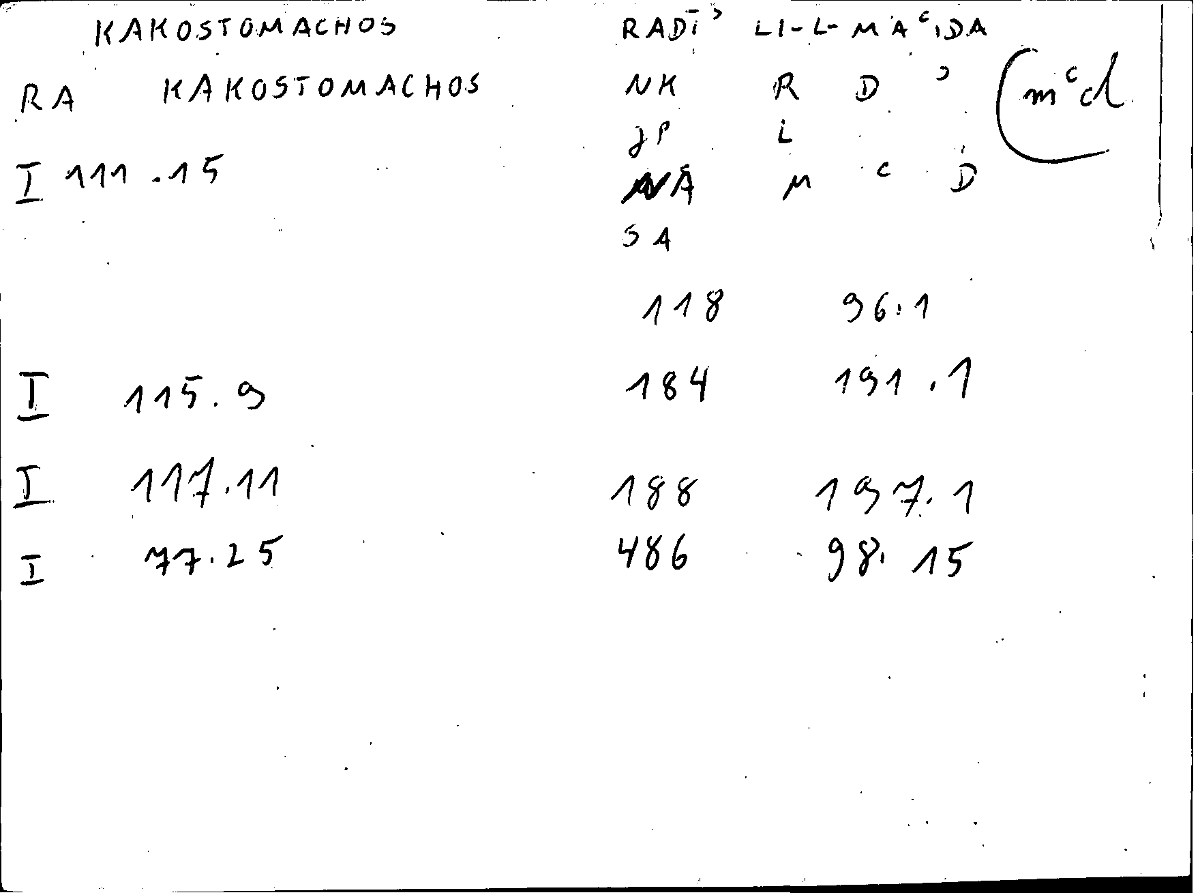 KAKOSTOMACHOS RADĪʾ LI-L-MAʿIDA
RA KAKOSTOMACHOS NK R D ʾ mʿd
JP L
I 111.15 NA M ʿ D
SA
118 96.1
I 115.9 184 191.1
I 117.11 188 197.1
I 77.25 486 98.15